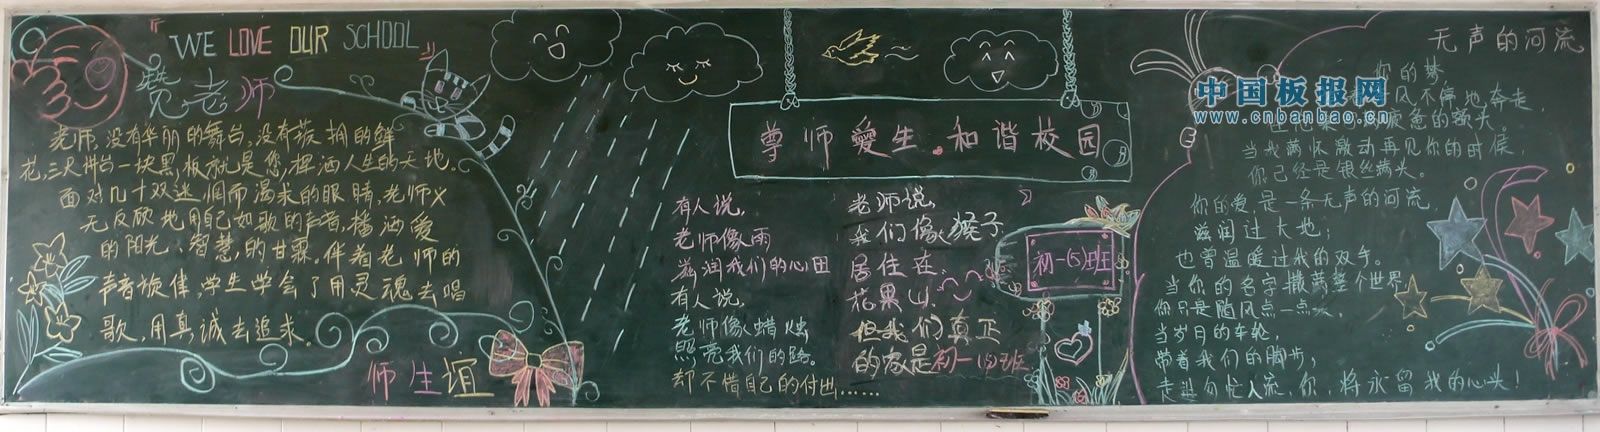 『WE LOVE OUR SCHOOL』
赞老师
老师,没有华丽的舞台,没有簇拥的鲜
花,三尺讲台一块黑板就是您,挥洒人生的天地。
面对几十双迷惘而渴求的眼睛,老师义
无反顾地用自己如歌的声音,播洒爱
的阳光、智慧的甘霖。伴着老师的
声音旋律,学生学会了用灵魂去唱
歌,用真诚去追求。
师生谊
尊师爱生 和谐校园
有人说,
老师像雨
滋润我们的心田
有人说,
老师像蜡烛
照亮我们的路。
却不惜自己的付出……
老师说,
我们像猴子
居住在
花果山.
但我们真正
的家是初一(5)班
初一(5)班
无声的河流
你的梦
风不停地奔走,
疲惫的额头,
当我满怀激动再见你的时候,
你已经是银丝满头。
你的爱是一条无声的河流,
滋润过大地;
也曾温暖过我的双手。
当你的名字撒满整个世界
你只是随风点一点头,
当岁月的车轮,
带着我们的脚步,
走进匆忙人流,你,将永留我的心头!
中国板报网
www.cnbanbao.cn